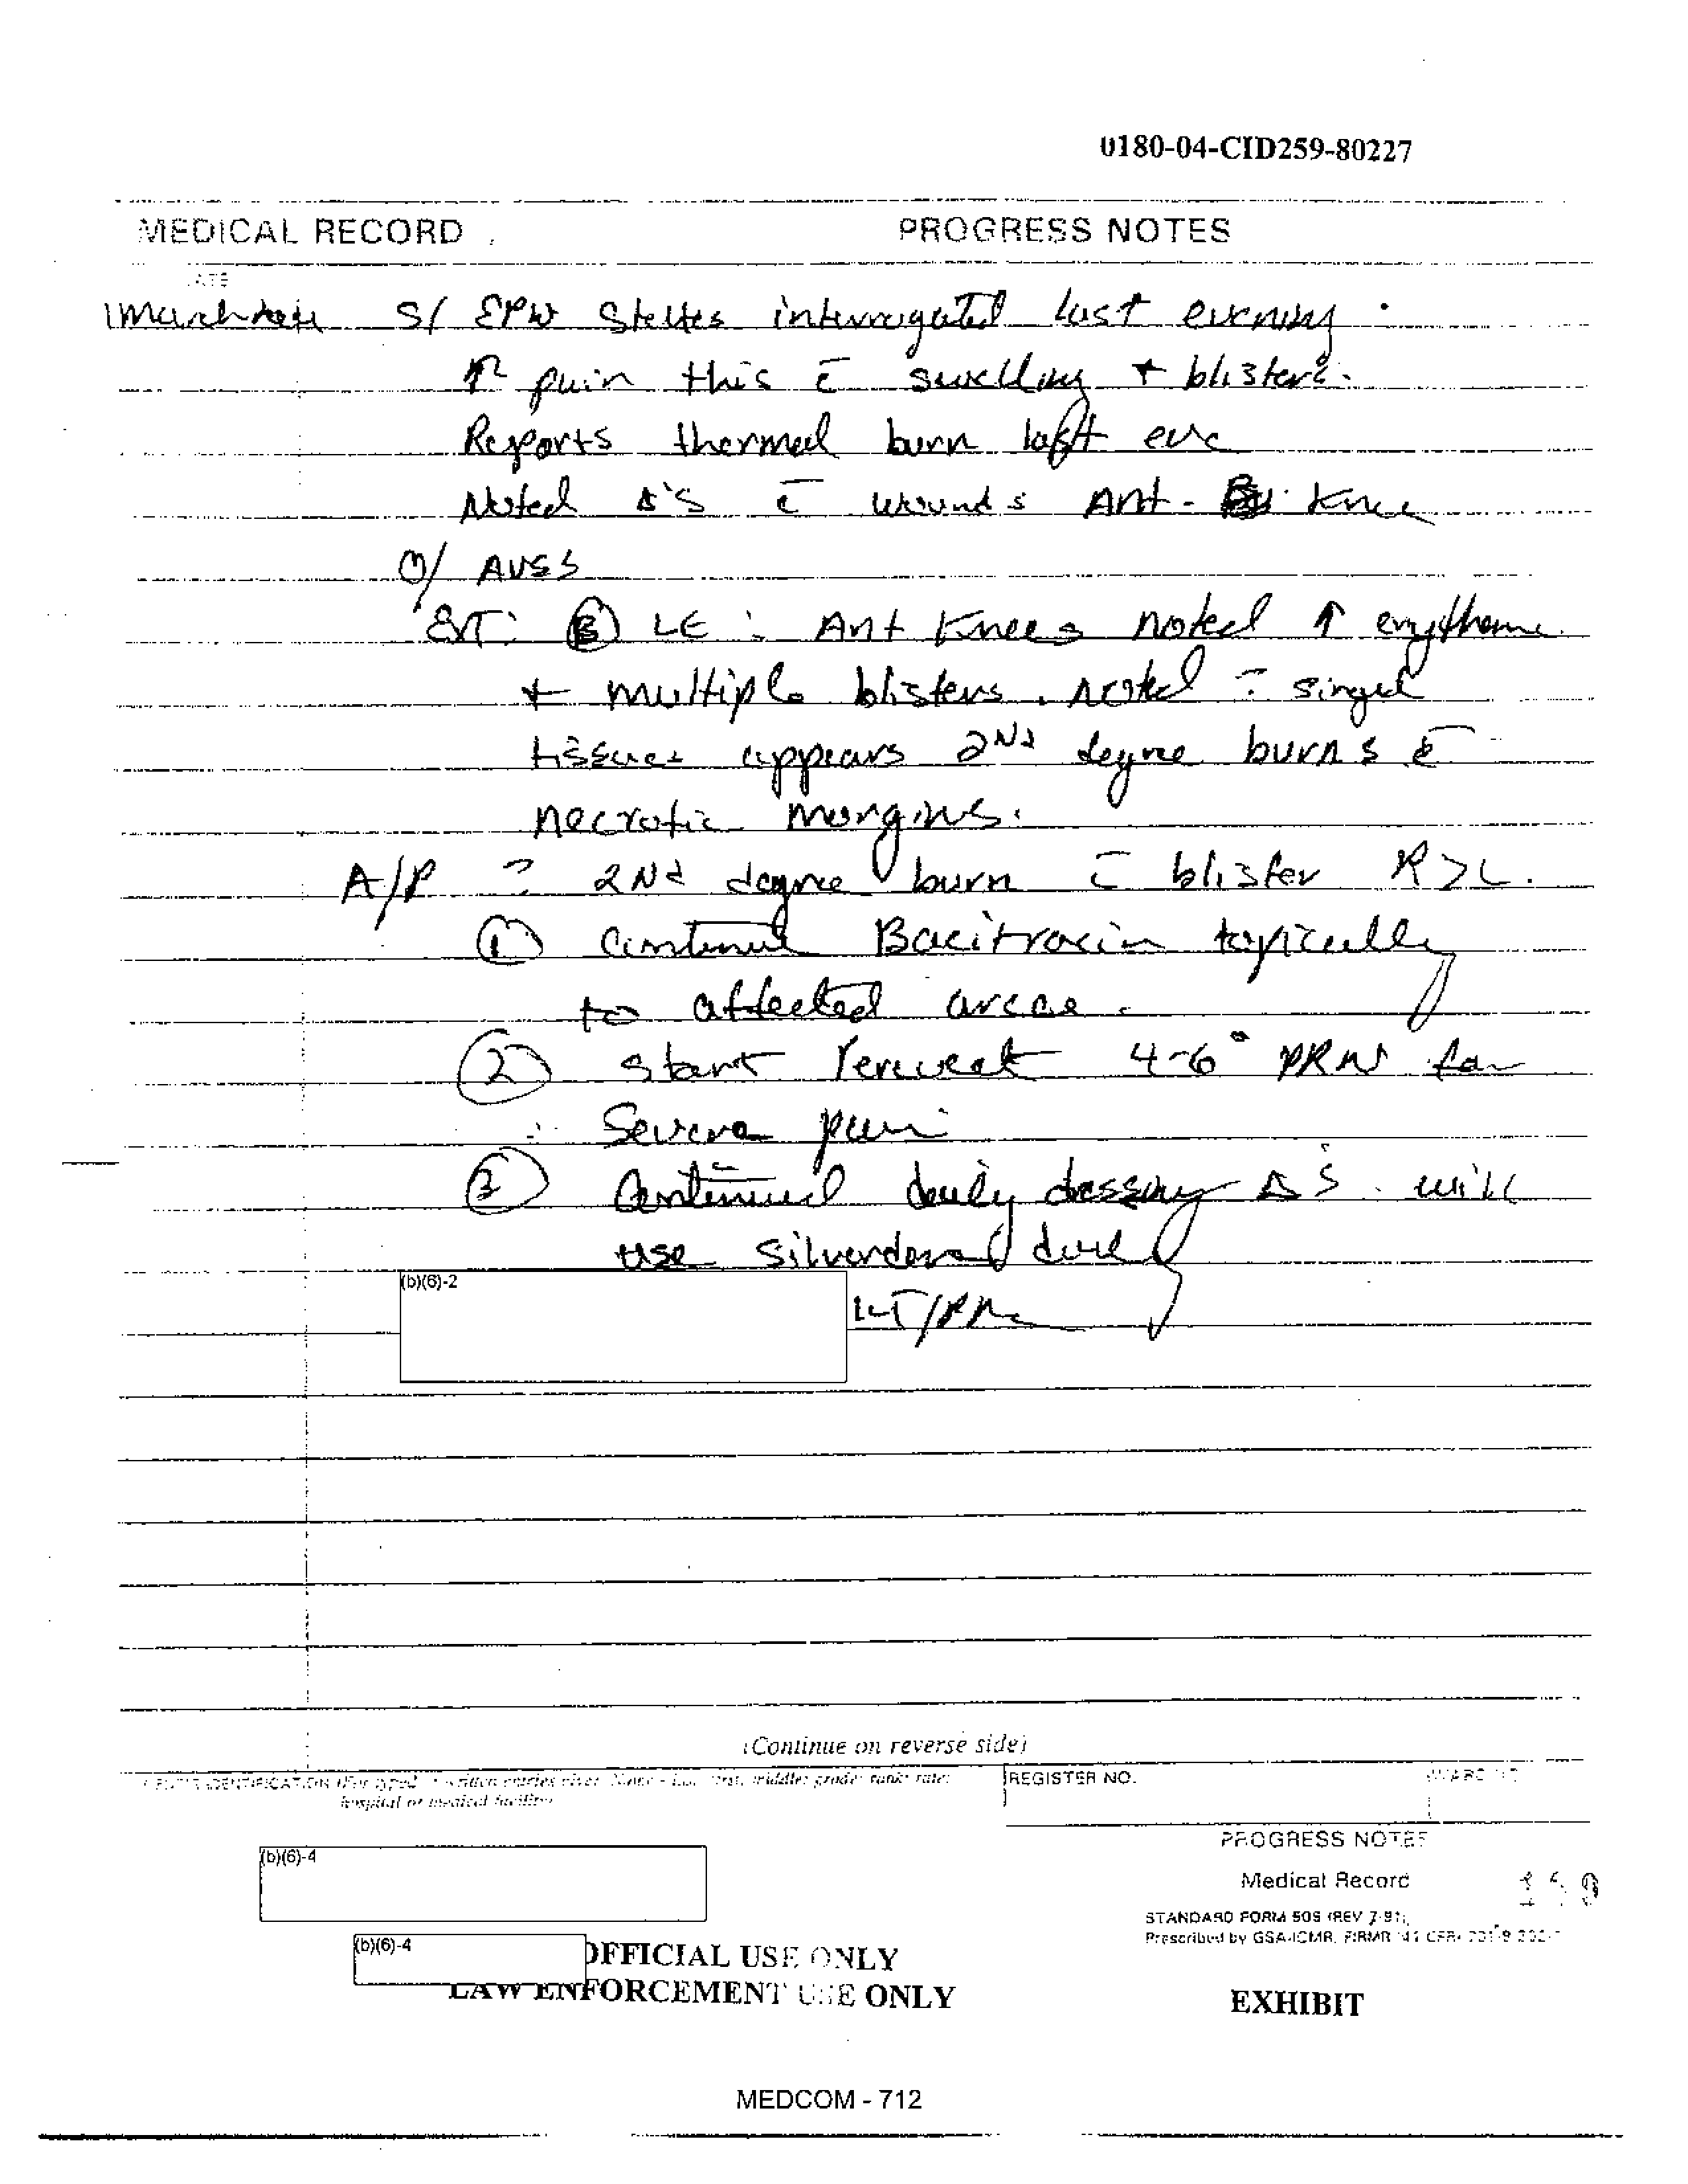 0180-04-CID259-80227
MEDICAL RECORD
PROGRESS NOTES
DATE
1 March
S/ EPW states interrogated last evening.
↑ pain this c̄ swelling + blisters.
Reports thermal burn last eve
Noted Δ's c̄ wounds Ant. Knee
O/ AVSS
EXT: Ⓑ LE: Ant Knees noted ↑ erythema
+ multiple blisters. Noted
tissues appears 2nd degree burns c̄
necrotic margins.
A/P ? 2nd degree burn c̄ blister R>L.
① Continue Bacitracin topically
to affected areas.
② Start Percocet 4-6° PRN for
Severe pain
③ Continued daily dressing Δ's. will
use silverdene
(b)(6)-2
(Continue on reverse side)
REGISTER NO.
WARD NO.
hospital or medical facility
PROGRESS NOTES
(b)(6)-4
Medical Record
STANDARD FORM 509 (REV 7-91)
Prescribed by GSA-ICMR, FIRMR (41 CFR)
(b)(6)-4
OFFICIAL USE ONLY
LAW ENFORCEMENT USE ONLY
EXHIBIT
MEDCOM - 712